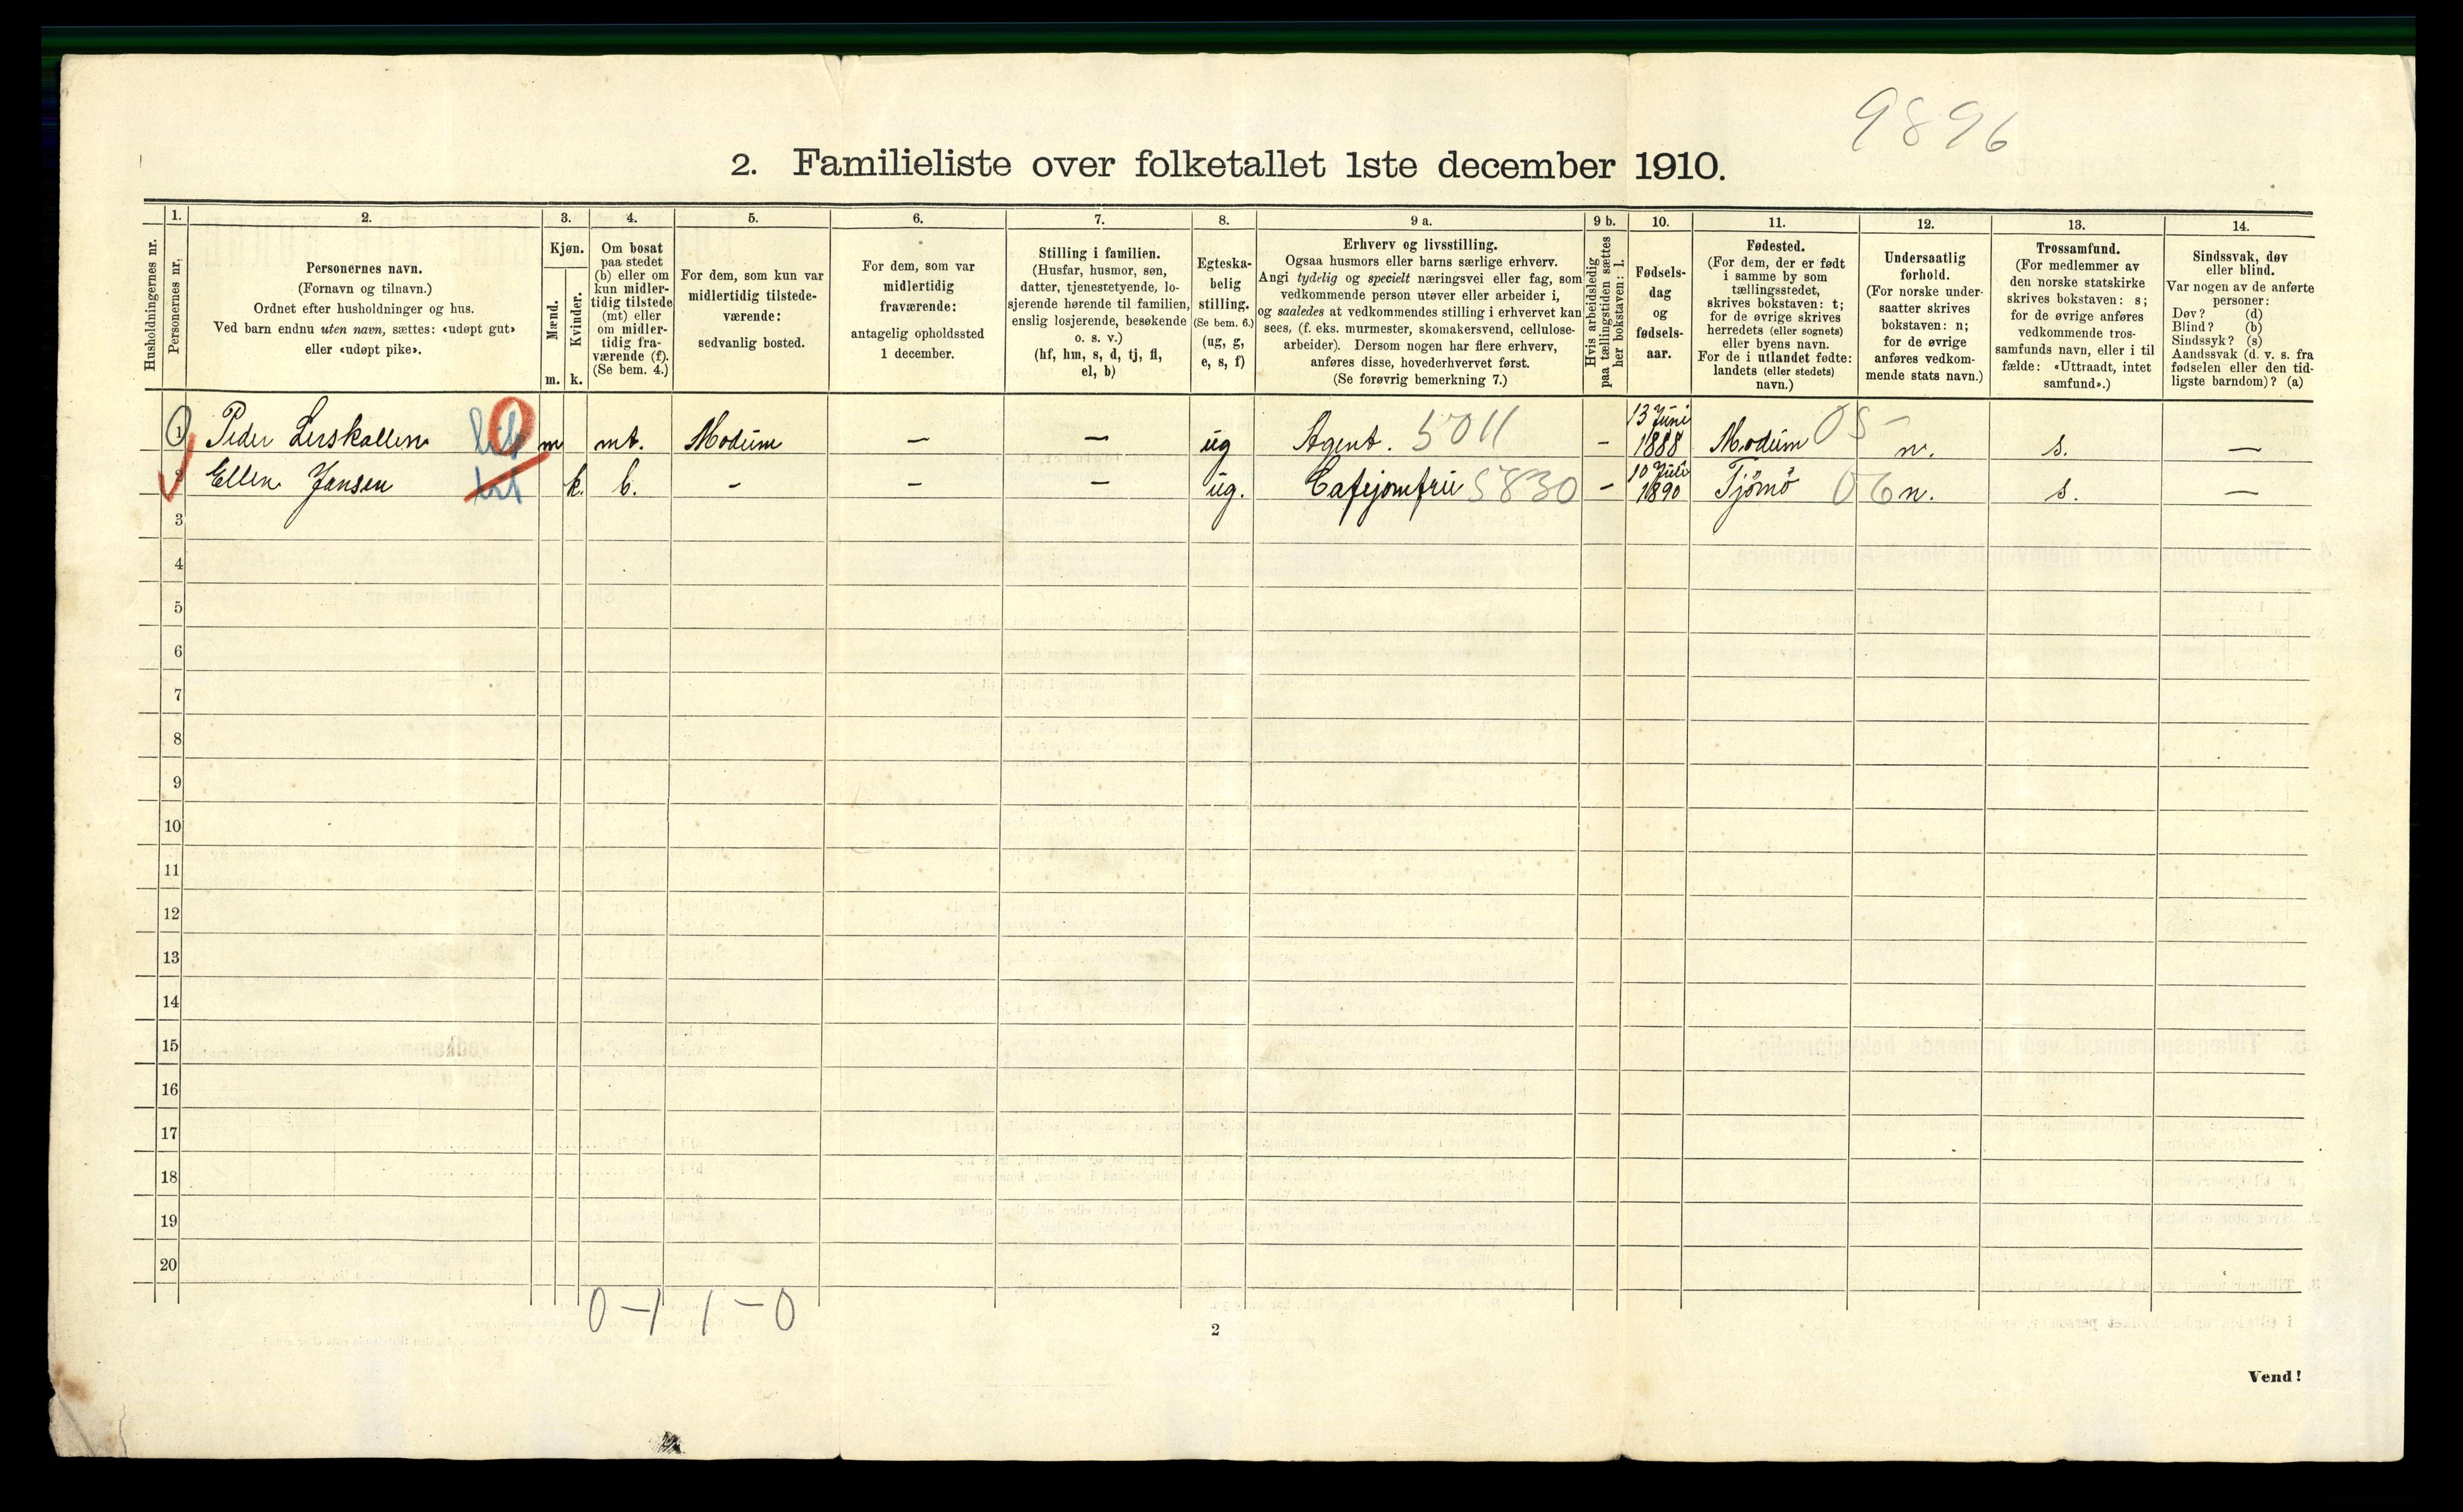 9896
2. Familieliste over folketallet 1ste december 1910.
Husholdningernes nr.
1.
Personernes nr.
2.
Personernes navn.
(Fornavn og tilnavn.)
Ordnet efter husholdninger og hus.
Ved barn endnu uten navn, sættes: «udøpt gut»
eller «udøpt pike».
3.
Kjøn.
Mænd.
Kvinder.
m.
k.
4.
Om bosat
paa stedet
(b) eller om
kun midler-
tidig tilstede
(mt) eller
om midler-
tidig fra-
værende (f).
(Se bem. 4.)
5.
For dem, som kun var
midlertidig tilstede-
værende:
sedvanlig bosted.
6.
For dem, som var
midlertidig
fraværende:
antagelig opholdssted
1 december.
7.
Stilling i familien.
(Husfar, husmor, søn,
datter, tjenestetyende, lo-
sjerende hørende til familien,
enslig losjerende, besøkende
o. s. v.)
(hf, hm, s, d, tj, fl,
el, b)
8.
Egteska-
belig
stilling.
(Se bem. 6.)
(ug, g,
e, s, f)
9 a.
Erhverv og livsstilling.
Ogsaa husmors eller barns særlige erhverv.
Angi tydelig og specielt næringsvei eller fag, som
vedkommende person utøver eller arbeider i,
og saaledes at vedkommendes stilling i erhvervet kan
sees, (f. eks. murmester, skomakersvend, cellulose-
arbeider). Dersom nogen har flere erhverv,
anføres disse, hovederhvervet først.
(Se forøvrig bemerkning 7.)
9 b.
Hvis arbeidsledig
paa tællingstiden sættes
her bokstaven: l.
10.
Fødsels-
dag
og
fødsels-
aar.
11.
Fødested.
(For dem, der er født
i samme by som
tællingsstedet,
skrives bokstaven: t;
for de øvrige skrives
herredets (eller sognets)
eller byens navn.
For de i utlandet fødte:
landets (eller stedets)
navn.)
12.
Undersaatlig
forhold.
(For norske under-
saatter skrives
bokstaven: n;
for de øvrige
anføres vedkom-
mende stats navn.)
13.
Trossamfund.
(For medlemmer av
den norske statskirke
skrives bokstaven: s;
for de øvrige anføres
vedkommende tros-
samfunds navn, eller i til
fælde: «Uttraadt, intet
samfund».)
14.
Sindssvak, døv
eller blind.
Var nogen av de anførte
personer:
Døv? (d)
Blind? (b)
Sindssyk? (s)
Aandssvak (d. v. s. fra
fødselen eller den tid-
ligste barndom)? (a)
1 Peder Lerskallen m mt. Modum — — ug Agent. 5011 - 13 Juni 1888 Modum 05- n. s. —
2 Ellen Jansen k. b. - - - ug. Cafejomfru 5830 - 10 Juli 1890 Tjömö 06 n. s. —
3
4
5
6
7
8
9
10
11
12
13
14
15
16
17
18
19
20
0 - 1 1 - 0
2
Vend!